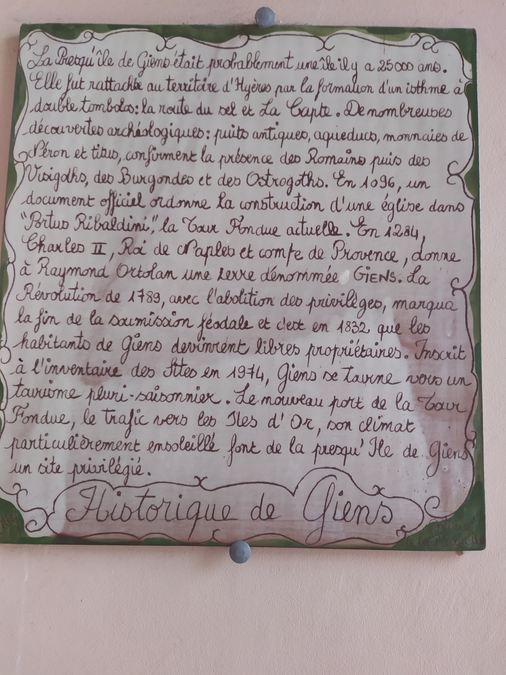 La Presqu'île de Giens était probablement une île il y a 25000 ans.
Elle fut rattachée au territoire d'Hyères par la formation d'un isthme à
double tombolo: la route du sel et La Capte. De nombreuses
découvertes archéologiques: puits antiques, aqueducs, monnaies de
Néron et titus, confirment la présence des Romains puis des
Visigoths, des Burgondes et des Ostrogoths. En 1096, un
document officiel ordonne la construction d'une église dans
"Portus Ribaldini", la Tour Fondue actuelle. En 1284,
Charles II, Roi de Naples et comte de Provence, donne
à Raymond Ortolan une terre dénommée GIENS. La
Révolution de 1789, avec l'abolition des privilèges, marqua
la fin de la soumission féodale et c'est en 1832 que les
habitants de Giens devinrent libres propriétaires. Inscrit
à l'inventaire des Sites en 1974, Giens se tourne vers un
tourisme pluri-saisonnier. Le nouveau port de la Tour
Fondue, le trafic vers les Iles d'Or, son climat
particulièrement ensoleillé font de la presqu'Ile de Giens
un site privilégié.
Historique de Giens